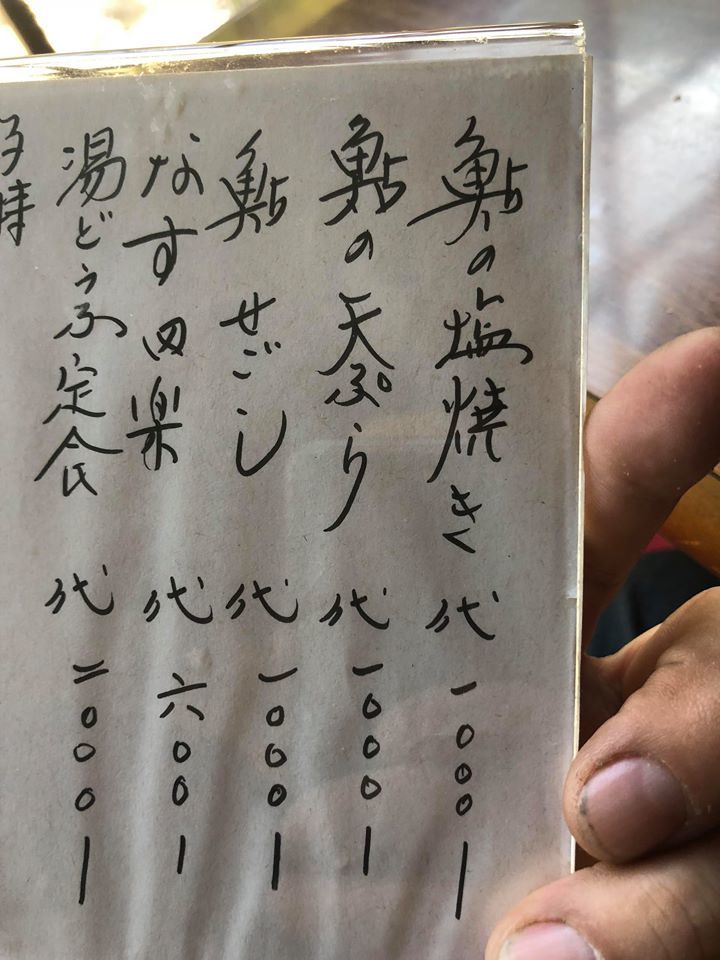 鮎の塩焼き 代 一〇〇〇ー
鮎の天ぷら 代 一〇〇〇ー
鮎 せごし 代 一〇〇〇ー
なす田楽 代 六〇〇ー
湯どうふ定食 代 二〇〇〇ー